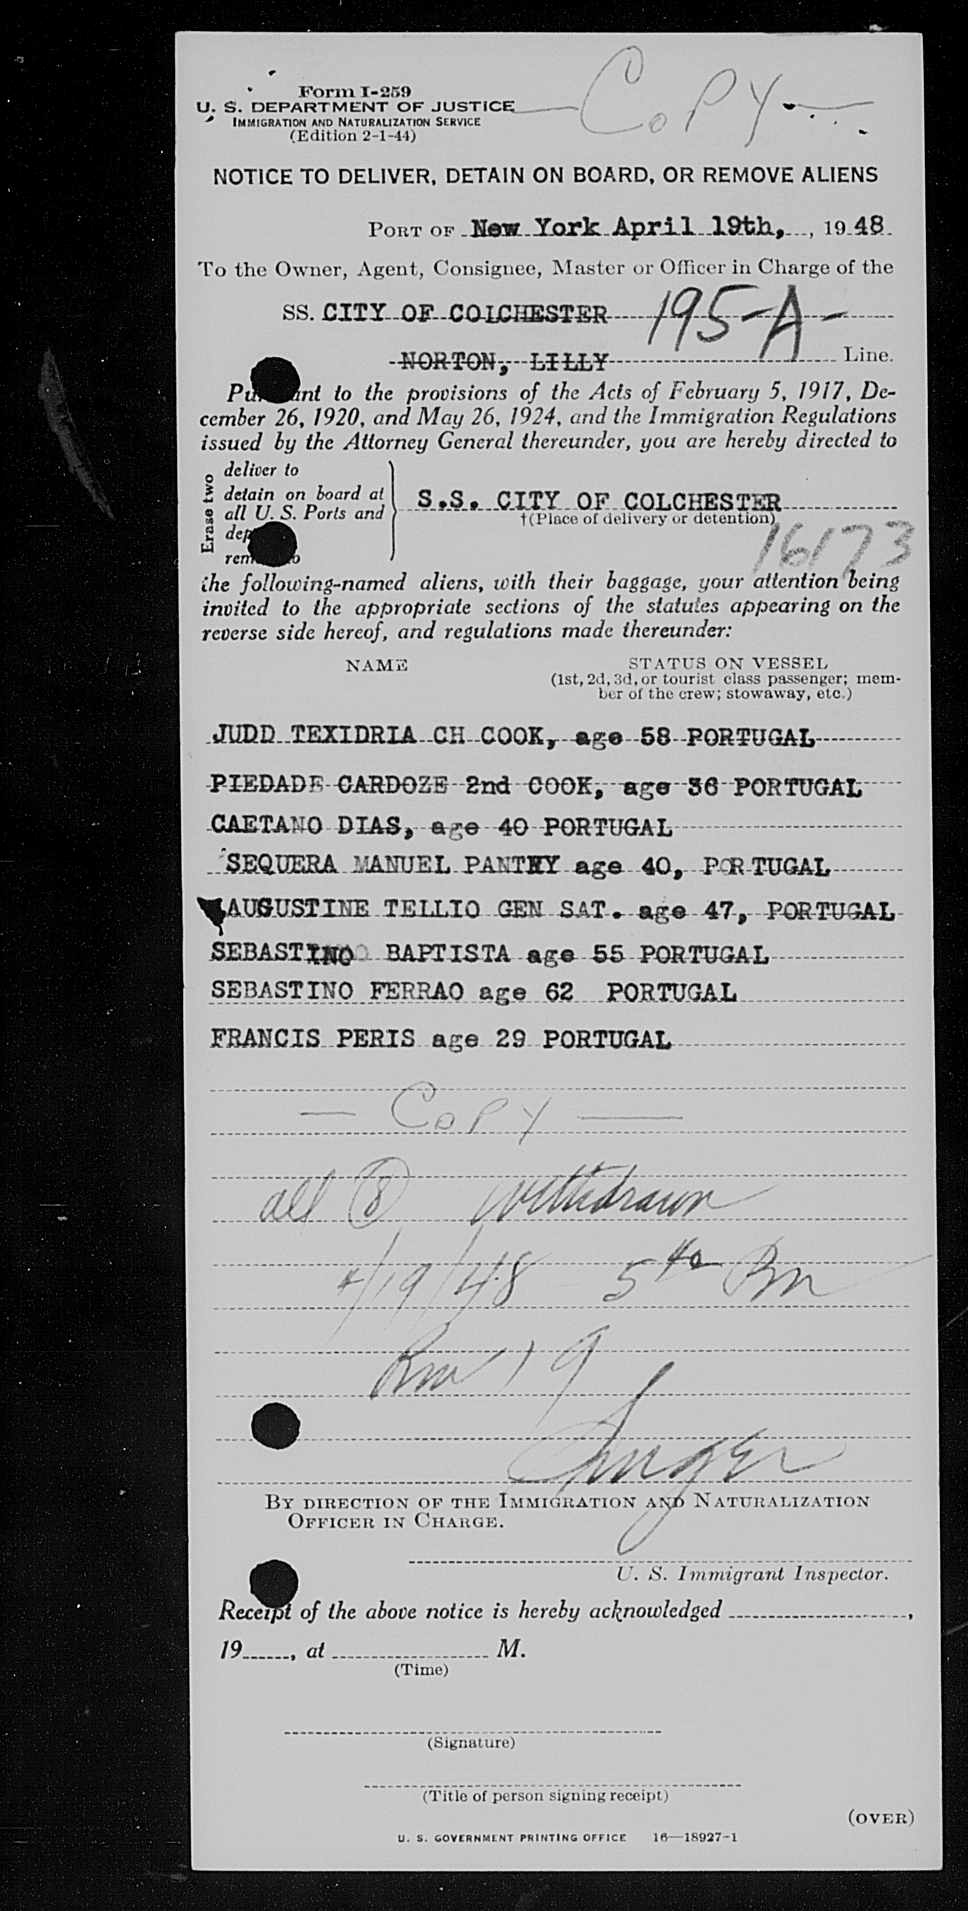 Form I-259
U. S. DEPARTMENT OF JUSTICE
IMMIGRATION AND NATURALIZATION SERVICE
(Edition 2-1-44)
— COPY —
NOTICE TO DELIVER, DETAIN ON BOARD, OR REMOVE ALIENS
PORT OF New York April 19th, , 1948
To the Owner, Agent, Consignee, Master or Officer in Charge of the
SS. CITY OF COLCHESTER 195-A-
NORTON, LILLY Line.
Pu ant to the provisions of the Acts of February 5, 1917, De-
cember 26, 1920, and May 26, 1924, and the Immigration Regulations
issued by the Attorney General thereunder, you are hereby directed to
Erase two
deliver to
detain on board at
all U. S. Ports and
dep
rem o
S.S. CITY OF COLCHESTER
†(Place of delivery or detention)
16173
the following-named aliens, with their baggage, your attention being
invited to the appropriate sections of the statutes appearing on the
reverse side hereof, and regulations made thereunder:
NAME STATUS ON VESSEL
(1st, 2d, 3d, or tourist class passenger; mem-
ber of the crew; stowaway, etc.)
JUDD TEXIDRIA CH COOK, age 58 PORTUGAL
PIEDADE CARDOZE 2nd COOK, age 36 PORTUGAL
CAETANO DIAS, age 40 PORTUGAL
SEQUERA MANUEL PANTRY age 40, PORTUGAL
AUGUSTINE TELLIO GEN SAT. age 47, PORTUGAL
SEBASTINO BAPTISTA age 55 PORTUGAL
SEBASTINO FERRAO age 62 PORTUGAL
FRANCIS PERIS age 29 PORTUGAL
— COPY —
all 8 withdrawn
4/19/48 5 40 Pm
Rm 19
Singer
BY DIRECTION OF THE IMMIGRATION AND NATURALIZATION
OFFICER IN CHARGE.
U. S. Immigrant Inspector.
Receipt of the above notice is hereby acknowledged ,
19 , at M.
(Time)
(Signature)
(Title of person signing receipt)
(OVER)
U. S. GOVERNMENT PRINTING OFFICE 16—18927-1